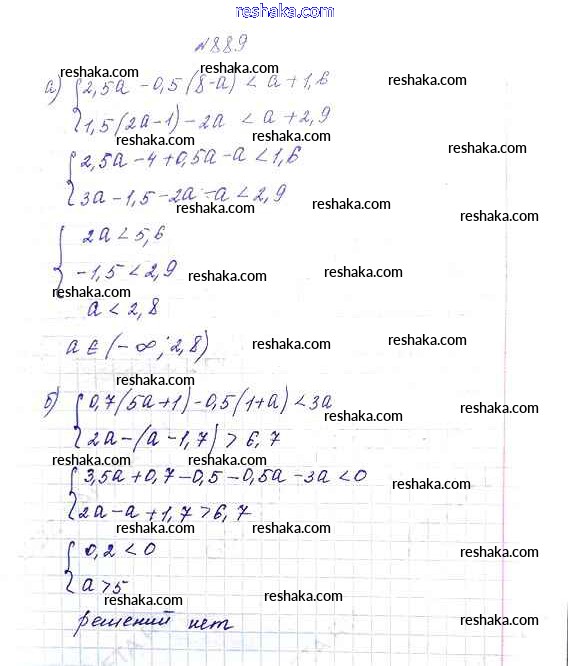 reshaka.com
№889
reshaka.com reshaka.com
а) { 2,5a - 0,5(8-a) < a + 1,6
reshaka.com
1,5(2a-1) - 2a < a + 2,9
reshaka.com reshaka.com
{ 2,5a - 4 + 0,5a - a < 1,6
reshaka.com
3a - 1,5 - 2a - a < 2,9
reshaka.com reshaka.com
{ 2a < 5,6
reshaka.com
-1,5 < 2,9
reshaka.com reshaka.com
reshaka.com
a < 2,8
a ∈ (-∞; 2,8)
reshaka.com reshaka.com
reshaka.com
б) { 0,7(5a+1) - 0,5(1+a) < 3a
reshaka.com
2a - (a - 1,7) > 6,7
reshaka.com reshaka.com
{ 3,5a + 0,7 - 0,5 - 0,5a - 3a < 0
reshaka.com
2a - a + 1,7 > 6,7
reshaka.com reshaka.com
{ 0,2 < 0
reshaka.com
a > 5
reshaka.com reshaka.com
решений нет
reshaka.com reshaka.com